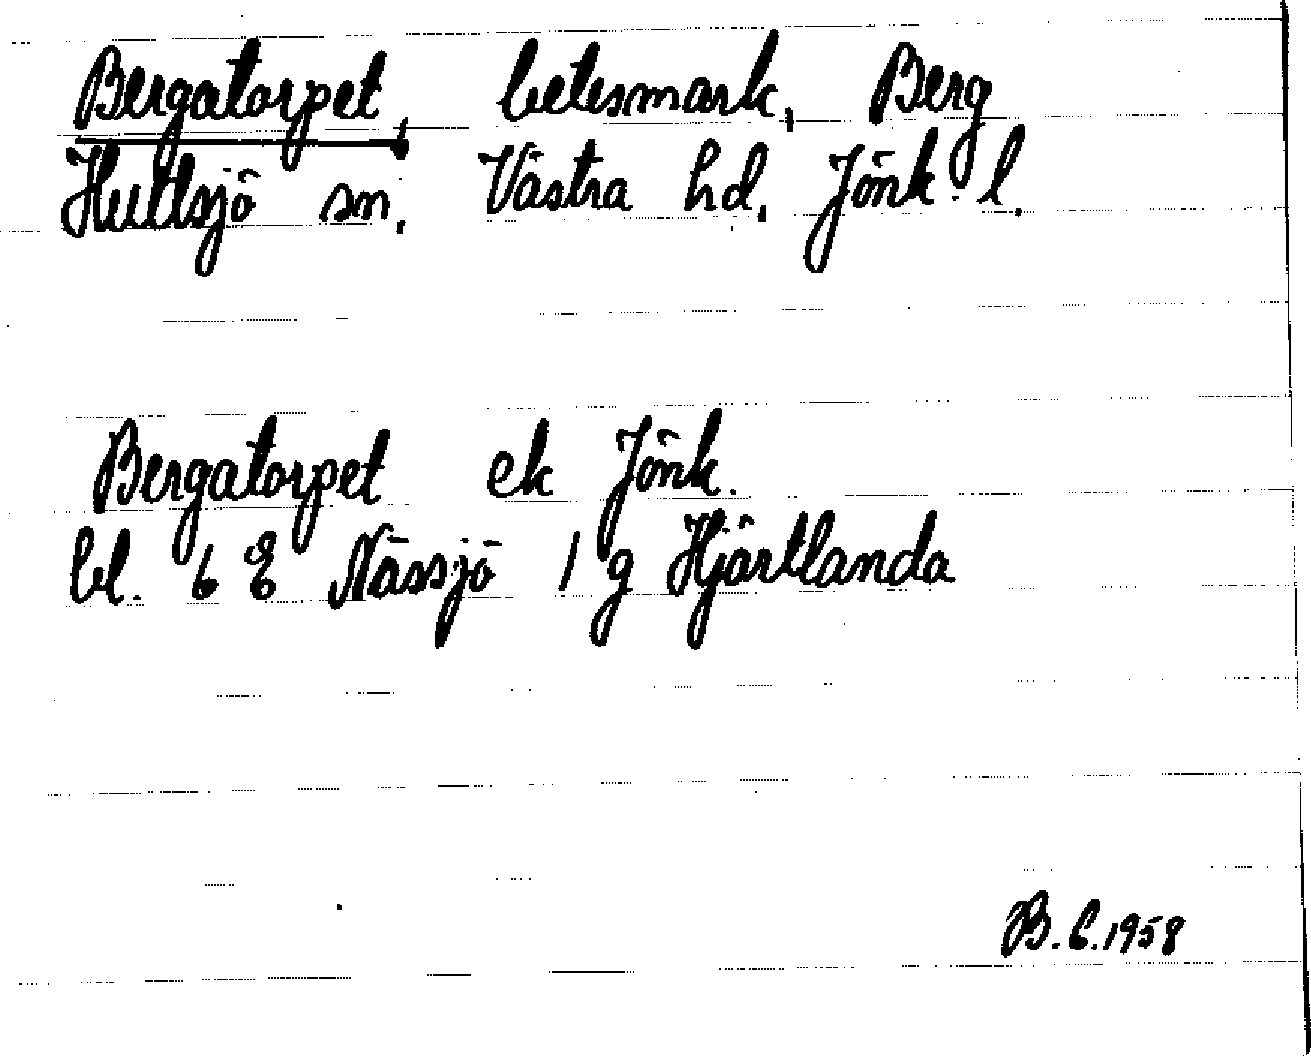 Bergatorpet, betesmark, Berg
Hultsjö sn, Västra hd, Jönk. l.
Bergatorpet ek Jönk.
bl. 6 E Nässjö 1 g Hjärtlanda
B.C.1958